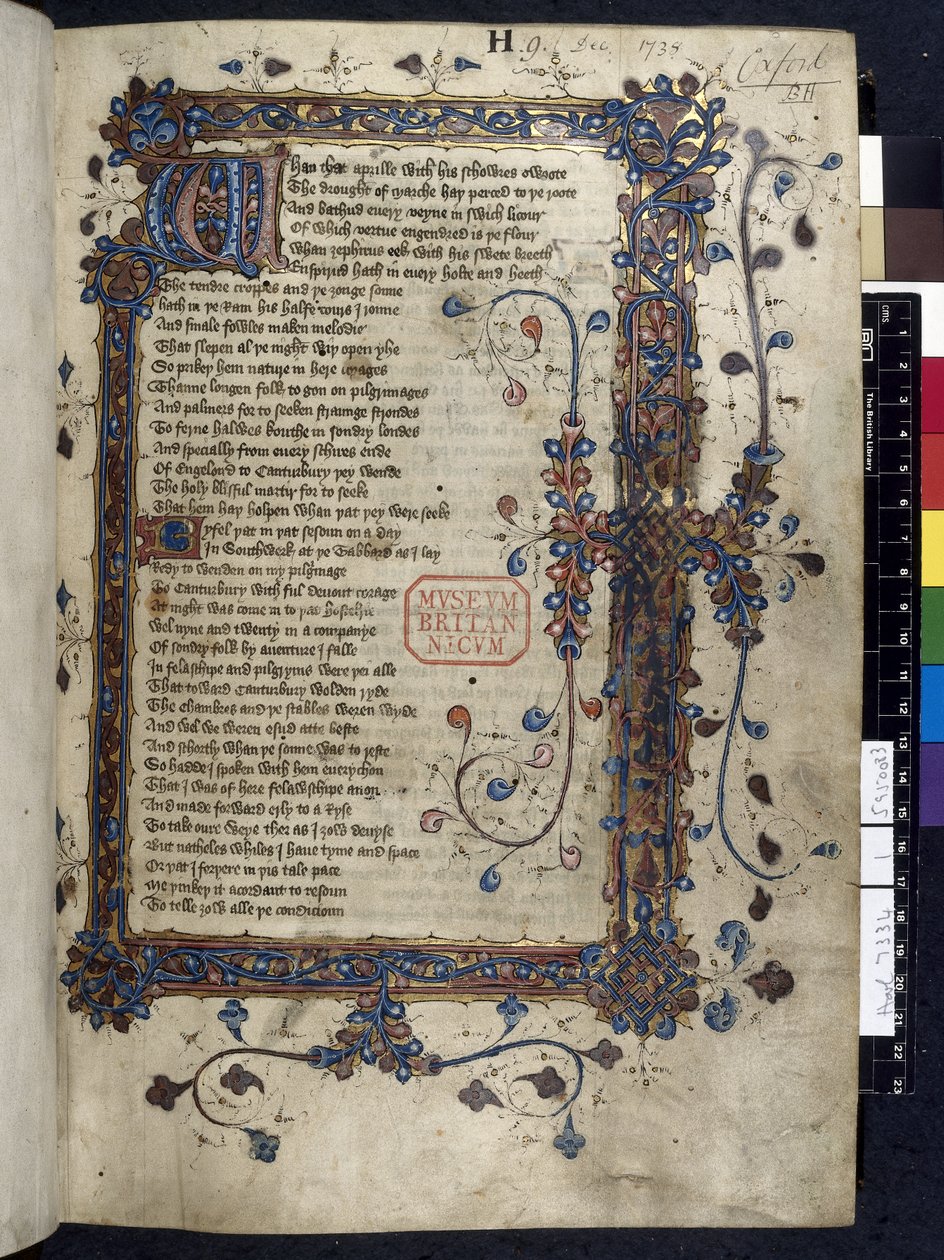 H 9. Dec. 1738
Oxford
BH
Whan that aprille with his schowres swoote
The drought of marche haþ perced to þe roote
And bathud euery veyne in swich licour
Of which vertue engendred is þe flour
Whan zephirus eek with his swete breeth
Enspirud hath in euery holte and heeth
The tendre croppes and þe ȝonge sonne
hath in þe Ram his halfe cours I ronne
And smale fowles maken melodie
That slepen al þe night wiþ open yhe
So prikeþ hem nature in here corages
Thanne longen folk to gon on pilgrimages
And palmers for to seeken straunge strondes
To ferne halwes kouthe in sondry londes
And specially from euery schires ende
Of Engelond to Canturbury þey wende
The holy blisful martir for to seeke
That hem haþ holpen whan þat þey were seeke
Byfel þat in þat sesoun on a day
In Southwerk at þe Tabbard as I lay
Redy to wenden on my pilgrimage
To Canturbury with ful deuout corage
At night was come in to þat hostelrie
Wel nyne and twenty in a companye
Of sondry folk by auenture I falle
In felaschipe and pilgryms were þei alle
That toward Canturbury wolden ryde
The chambres and þe stables weren wyde
And wel we weren esud atte beste
And schortly whan þe sonne was to reste
So hadde I spoken with hem euerychon
That I was of here felawschipe anon
And made forward erly to aryse
To take oure weye ther as I ȝow deuyse
But natheles whiles I haue tyme and space
Or þat I forþere in þis tale pace
Me þinkeþ it acordant to resoun
To telle ȝow alle þe condicioun
MVSEVM
BRITAN
NICVM
cms
The British Library
1
2
3
4
5
6
7
8
9
10
11
12
13
14
15
16
17
18
19
20
21
22
23
Harl 7334
1